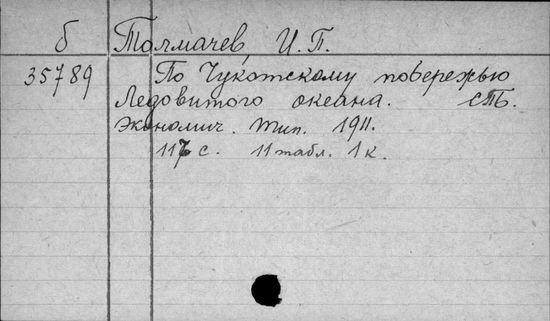 б Толмачев, И. П.
35789 По Чукотскому побережью
Ледовитого океана. СПб.
Экономич. тип. 1911.
117 с. 11 табл. 1 к.